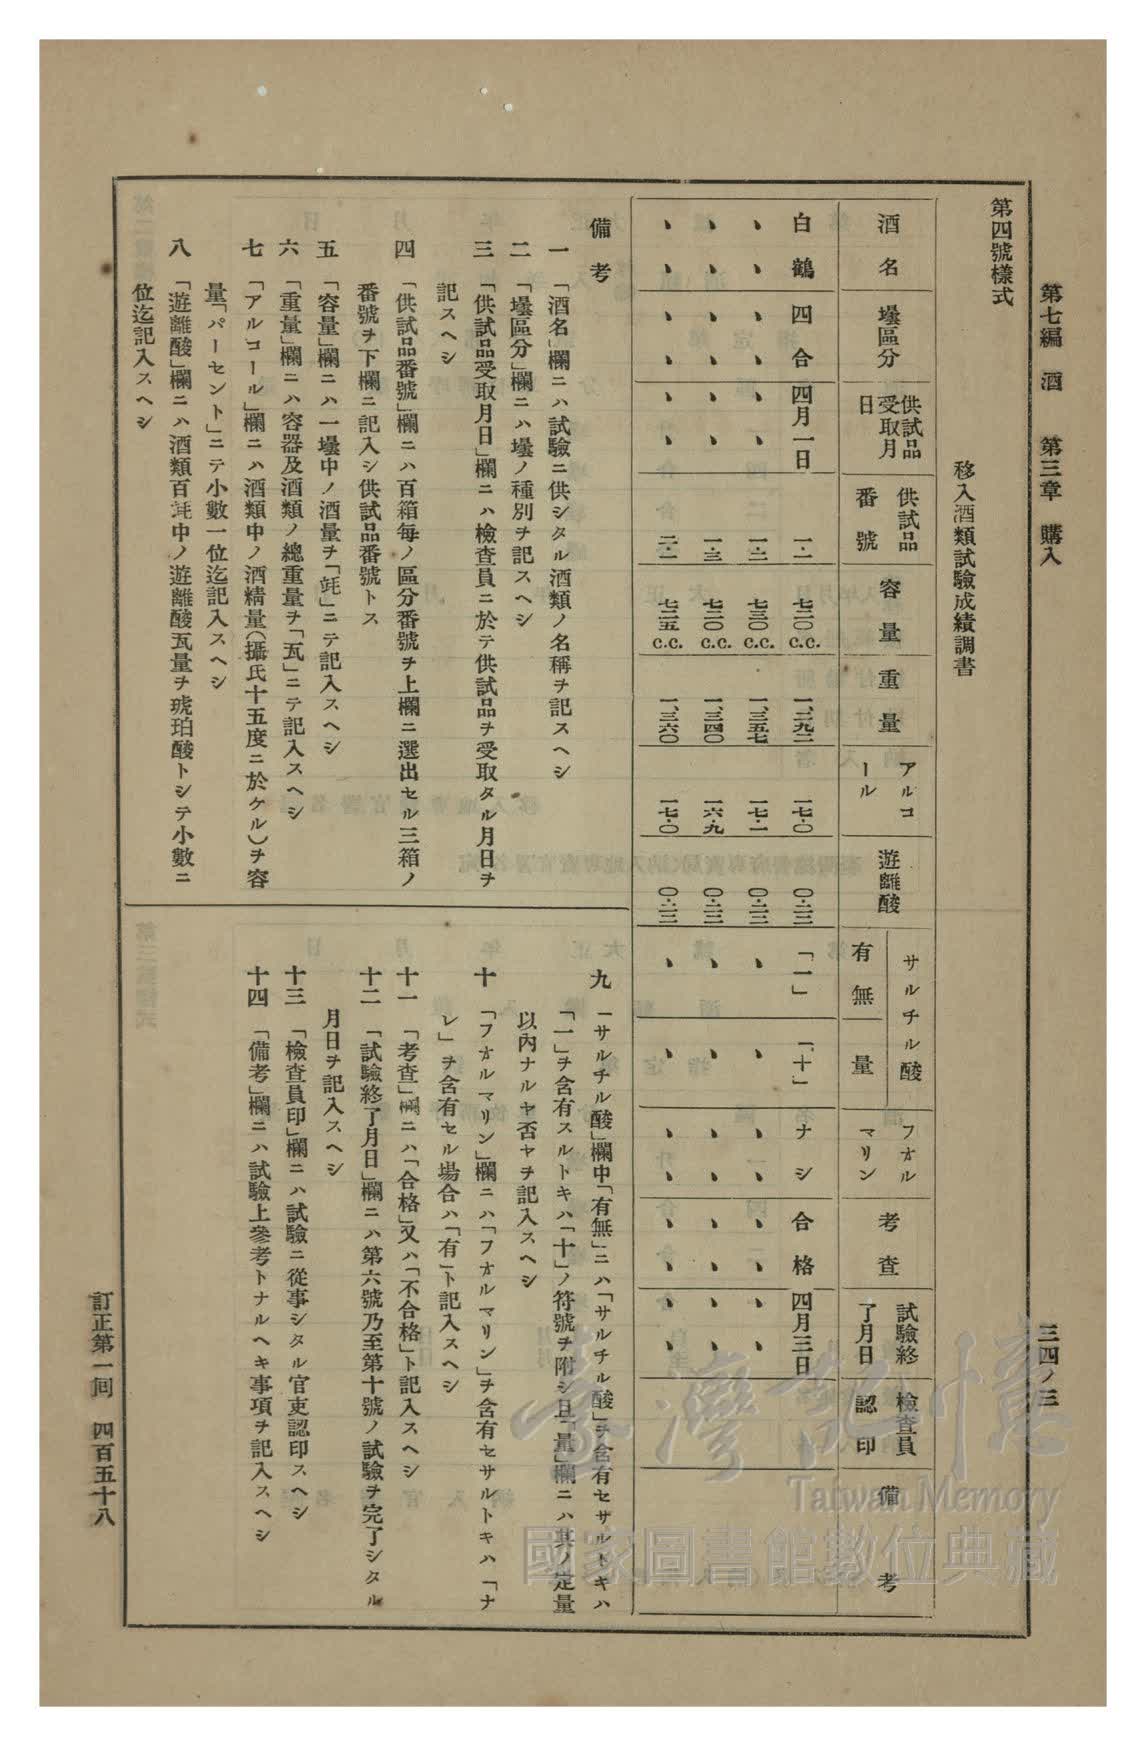 第七編　酒　　第三章　購入
三四ノ三
第四號樣式
移入酒類試驗成績調書
酒名　壜區分　供試品受取月日　供試品番號　容量　重量　アルコール　遊離酸　サルチル酸　有無　量　フオルマリン　考査　試驗終了月日　檢査員認印　備考
白鶴　四合　四月一日　一・一　七二〇c.c.　一、三九二　一七・〇　〇・二三　「一」　「十」　ナシ　合格　四月三日
〃　〃　〃　〃　〃　一・二　七三〇c.c.　一、三五七　一七・一　〇・二三　〃　〃　〃　〃　〃　〃　〃　〃
〃　〃　〃　〃　〃　一・三　七二〇c.c.　一、三四〇　一六・九　〇・二三　〃　〃　〃　〃　〃　〃　〃　〃
〃　〃　〃　〃　〃　二・一　七二五c.c.　一、三六〇　一七・〇　〇・二三　〃　〃　〃　〃　〃　〃　〃　〃
備考
一　「酒名」欄ニハ試驗ニ供シタル酒類ノ名稱ヲ記スヘシ
二　「壜區分」欄ニハ壜ノ種別ヲ記スヘシ
三　「供試品受取月日」欄ニハ檢查員ニ於テ供試品ヲ受取タル月日ヲ
記スヘシ
四　「供試品番號」欄ニハ百箱每ノ區分番號ヲ上欄ニ選出セル三箱ノ
番號ヲ下欄ニ記入シ供試品番號トス
五　「容量」欄ニハ一壜中ノ酒量ヲ「竓」ニテ記入スヘシ
六　「重量」欄ニハ容器及酒類ノ總重量ヲ「瓦」ニテ記入スヘシ
七　「アルコール」欄ニハ酒類中ノ酒精量(攝氏十五度ニ於ケル)ヲ容
量「パーセント」ニテ小數一位迄記入スヘシ
八　「遊離酸」欄ニハ酒類百竓中ノ遊離酸瓦量ヲ琥珀酸トシテ小數二
位迄記入スヘシ
九　「サルチル酸」欄中「有無」ニハ「サルチル酸」ヲ含有セサルトキハ
「一」ヲ含有スルトキハ「十」ノ符號ヲ附シ且「量」欄ニハ其ノ定量
以內ナルヤ否ヤヲ記入スヘシ
十　「フオルマリン」欄ニハ「フオルマリン」ヲ含有セサルトキハ「ナ
シ」ヲ含有セル場合ハ「有」ト記入スヘシ
十一　「考查」欄ニハ「合格」又ハ「不合格」ト記入スヘシ
十二　「試驗終了月日」欄ニハ第六號乃至第十號ノ試驗ヲ完了シタル
月日ヲ記入スヘシ
十三　「檢查員印」欄ニハ試驗ニ從事シタル官吏認印スヘシ
十四　「備考」欄ニハ試驗上參考トナルヘキ事項ヲ記入スヘシ
訂正第一回　四百五十八
臺灣記憶
Taiwan Memory
國家圖書館數位典藏